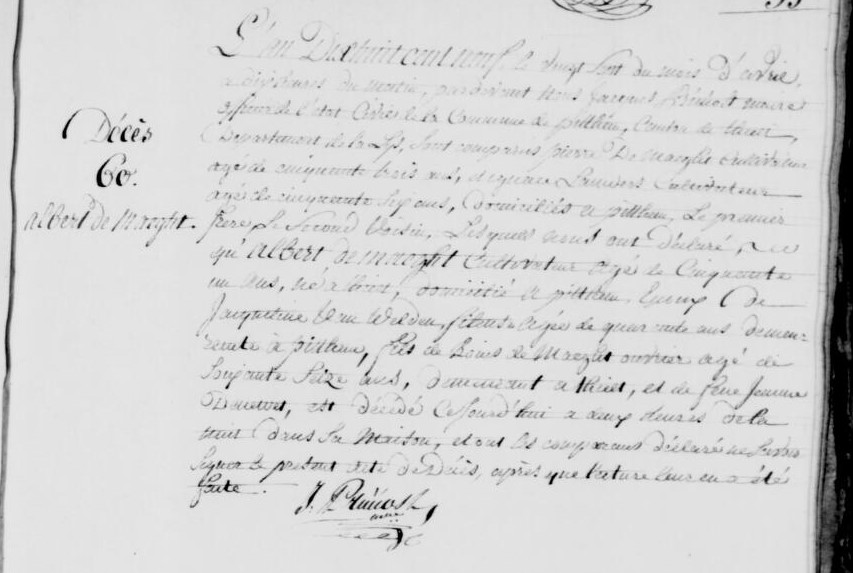 33
Décès
60.
albert de Maeght.
L'an Dix huit cent neuf, le vingt sept du mois d'avril,
a dix heures du matin, pardevant nous Jacques Prévost maire
officier de l'état Civil de la Commune de pitthem, Canton de thielt
Département de la Lys, sont comparus pierre De maeght Cultivateur
agé de cinquante trois ans, et Lauwers Cultivateur
agé de cinquante six ans, domiciliés a pitthem, Le premier
frere, Le Second Voisin, Lesquels nous ont Déclaré,
qu'albert de maeght Cultivateur agé de Cinquante
un ans, né a thielt, domicilié a pitthem, Epoux de
Jacqueline Van Welden, fileuse agée de quarante ans demeu-
rante à pitthem, fils de de Maeght ouvrier agé de
Soixante Seize ans, demeurant a thielt, et de feue Jeanne
est décédé Cejourd'hui a deux heures de la
nuit dans Sa Maison, et ont les comparans déclaré ne Savoir
Signer le present acte de Décès, après que Lecture leur en a été
faite.
J. Prévost
maire